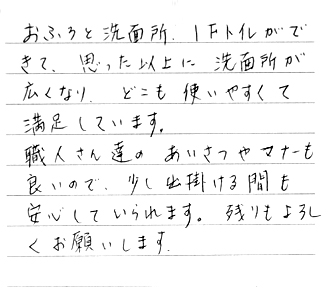 おふろと洗面所、1Fトイレがで
きて、思った以上に洗面所が
広くなり、どこも使いやすくて
満足しています。
職人さん達のあいさつやマナーも
良いので、少し出掛ける間も
安心していられます。残りもよろし
くお願いします.